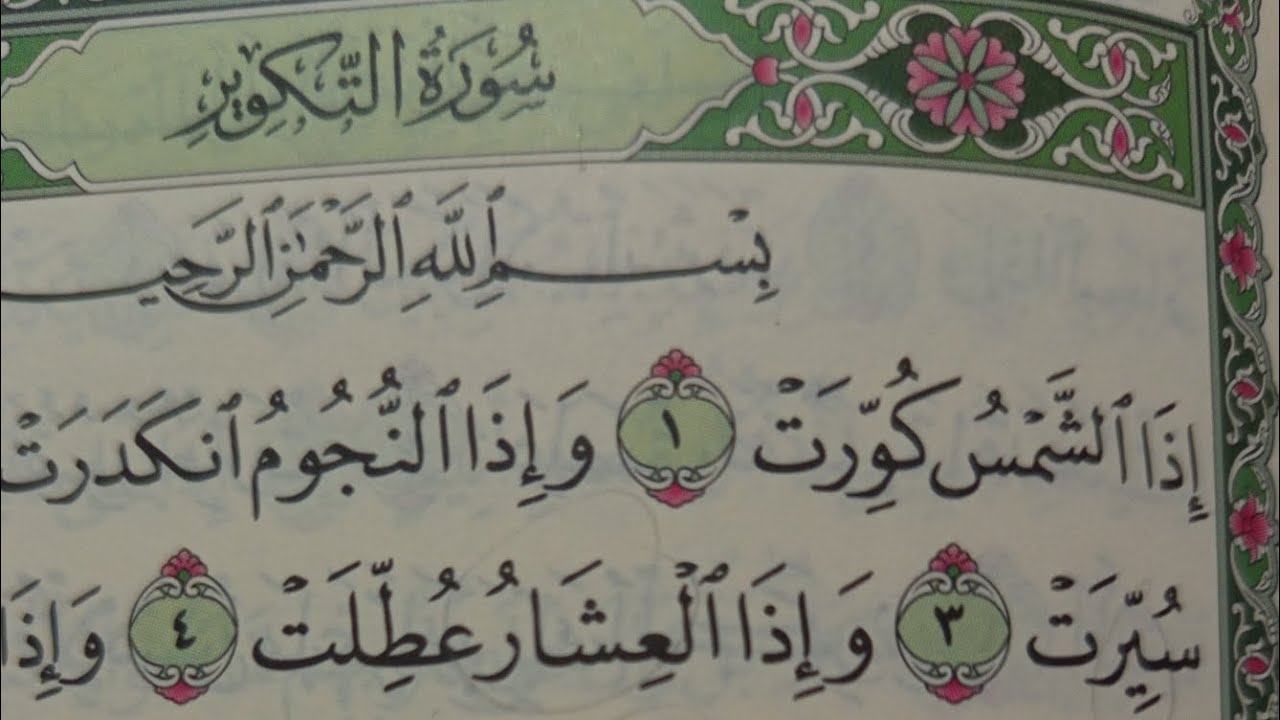 سُورَةُ التَّكْوِيرِ
بِسْمِ ٱللَّهِ ٱلرَّحْمَٰنِ ٱلرَّحِي
إِذَا ٱلشَّمْسُ كُوِّرَتْ ١ وَإِذَا ٱلنُّجُومُ ٱنكَدَرَتْ
سُيِّرَتْ ٣ وَإِذَا ٱلْعِشَارُ عُطِّلَتْ ٤ وَإِذَا